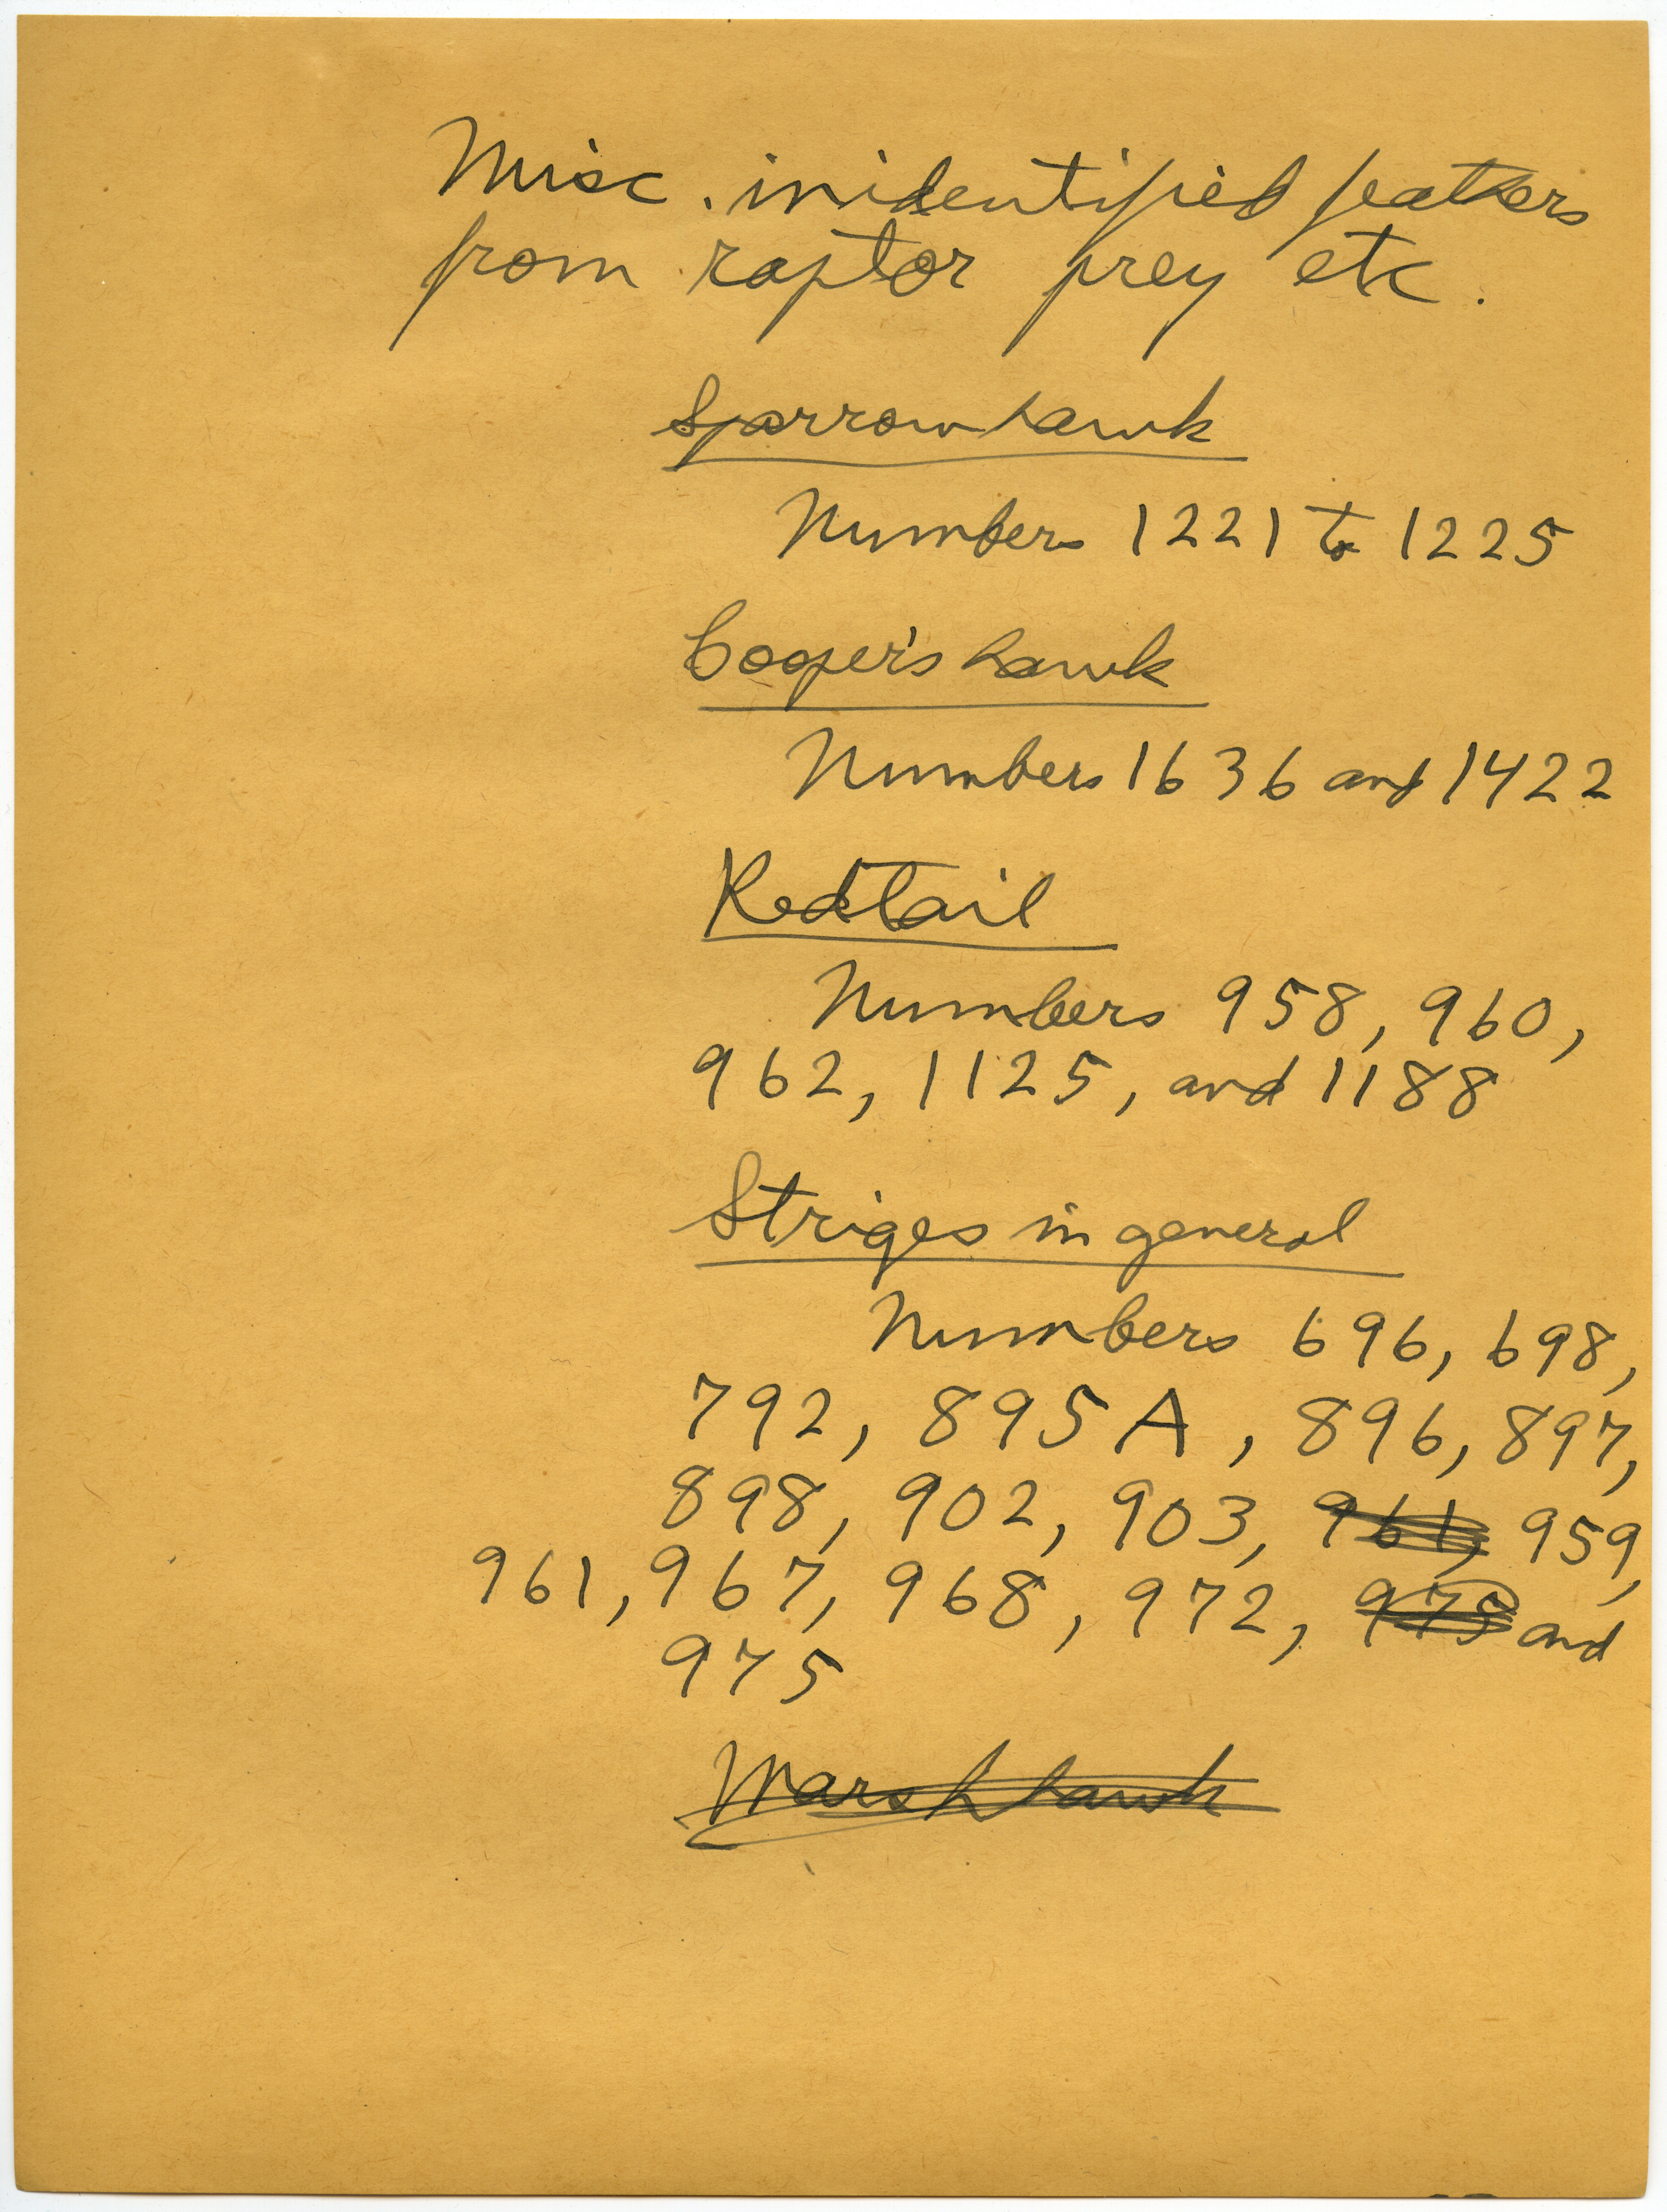 Misc. inidentified feathers
from raptor prey etc.
Sparrow hawk
Numbers 1221 to 1225
Cooper's hawk
Numbers 1636 and 1422
Redtail
Numbers 958, 960,
962, 1125, and 1188
Striges in general
Numbers 696, 698,
792, 895A, 896, 897,
898, 902, 903, 961, 959,
961, 967, 968, 972, 975 and
975
Marsh hawk